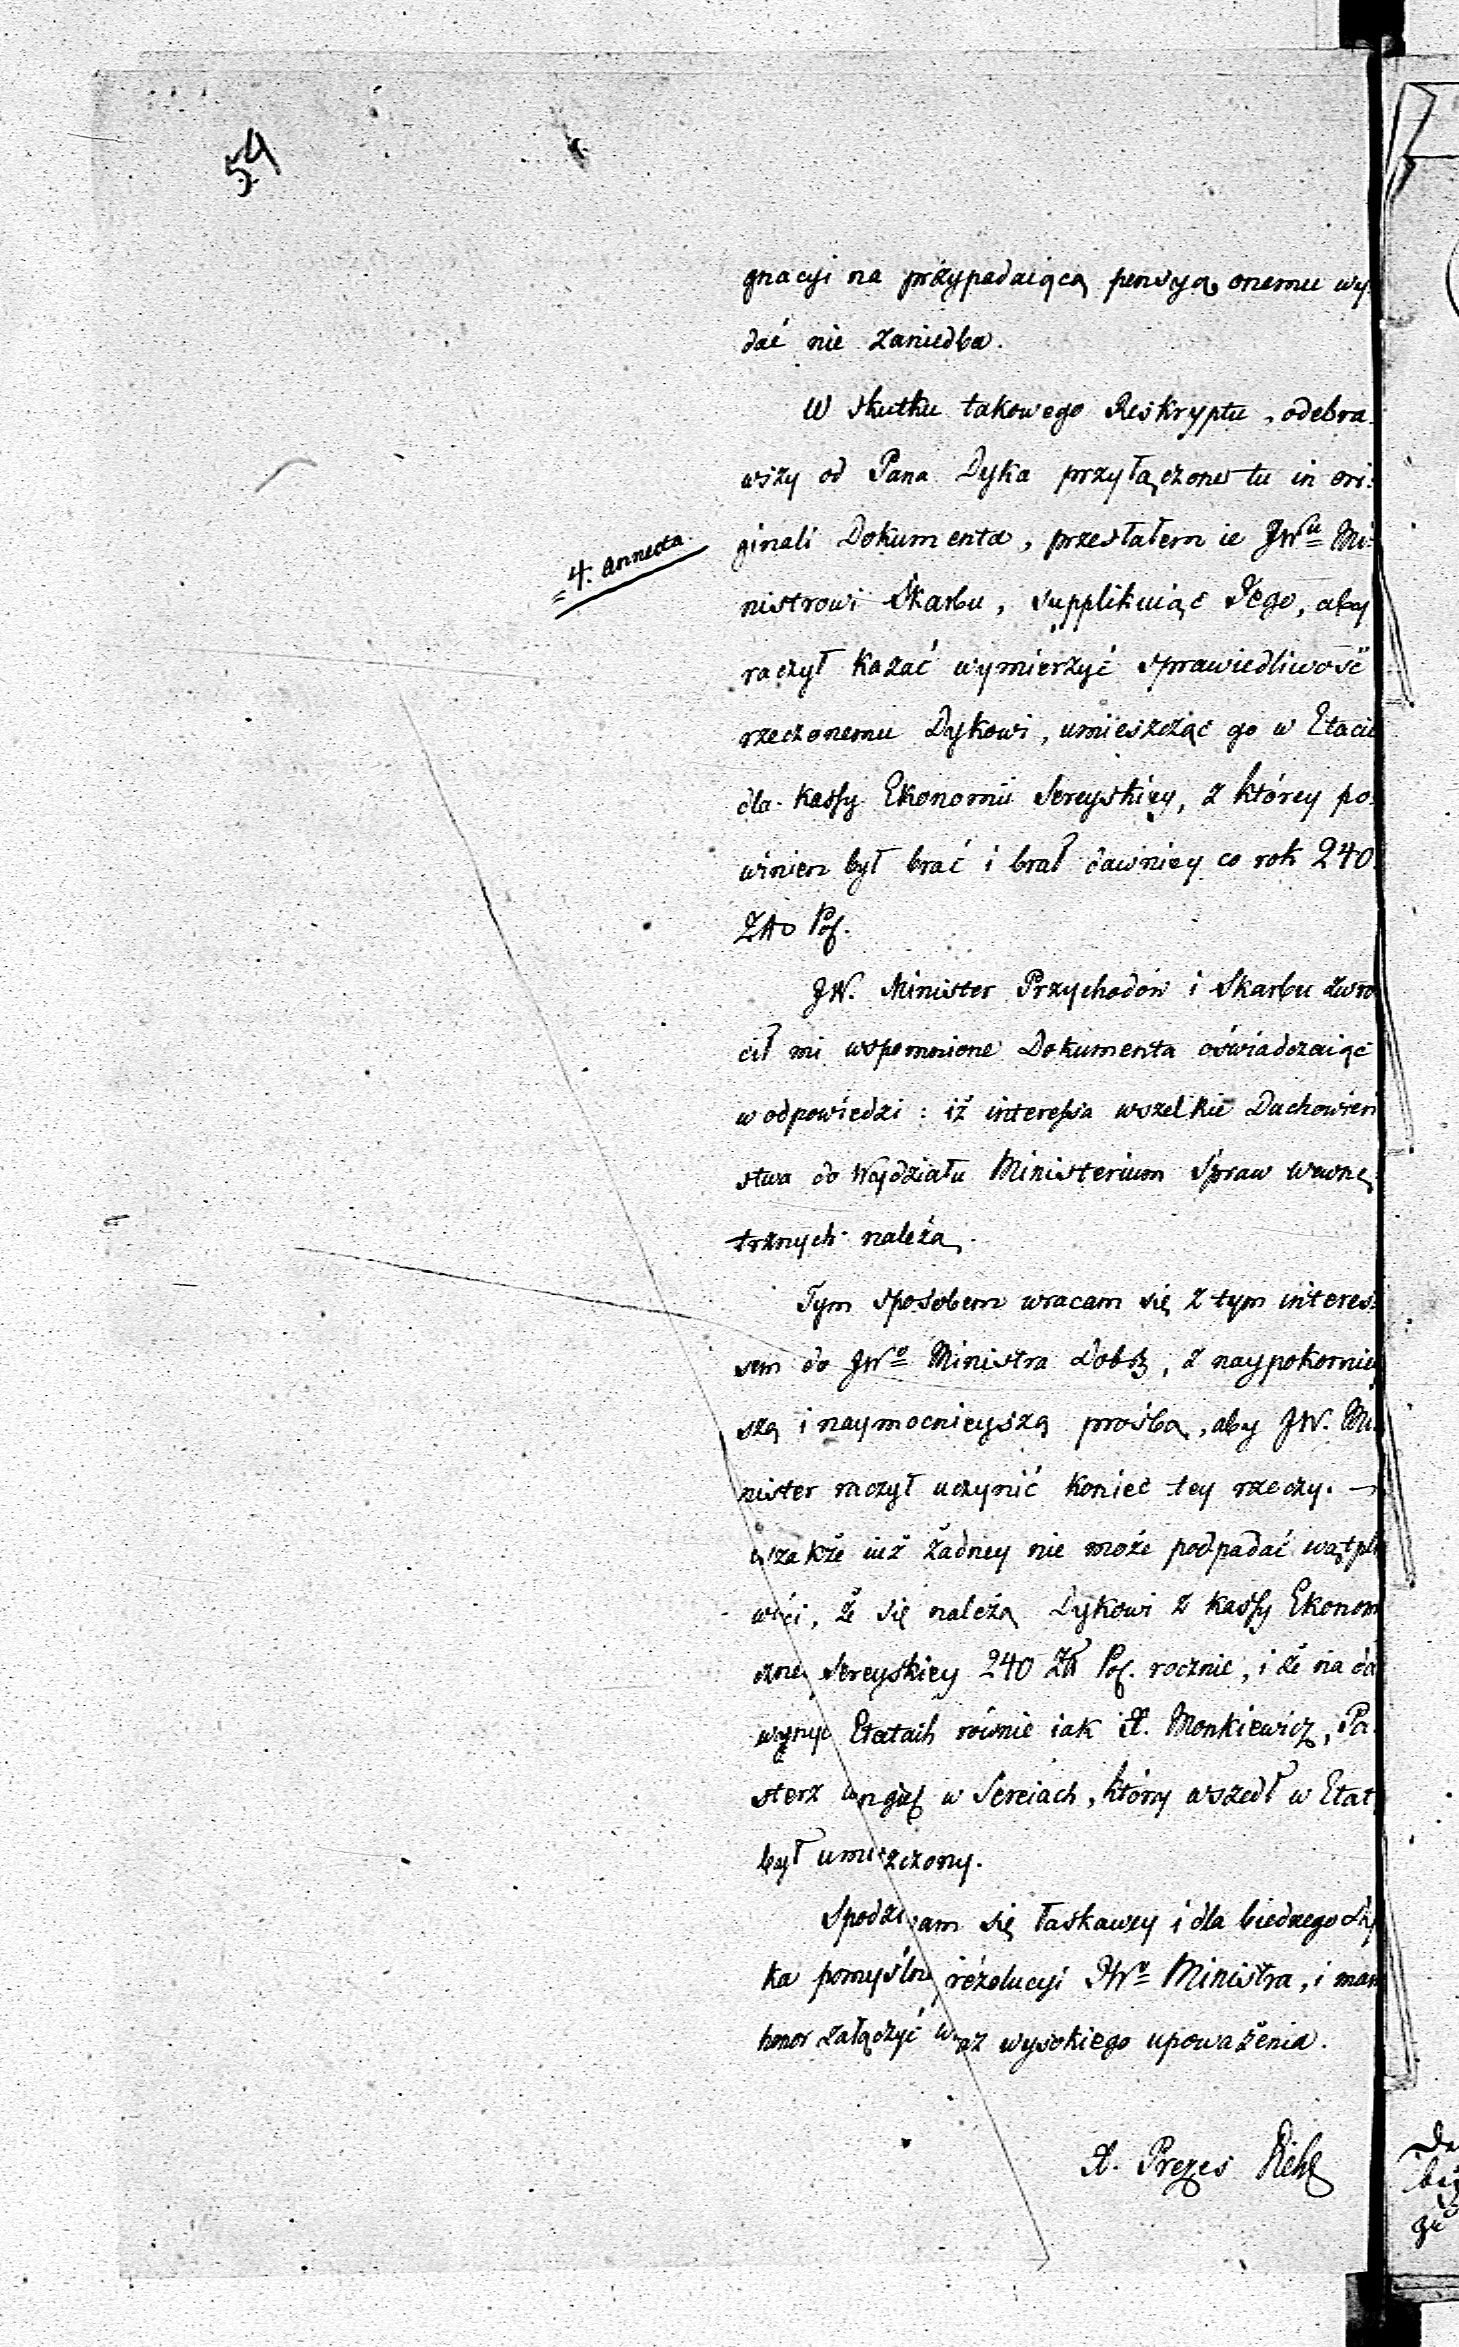 54
gnacyi na przypadaiącą pensyą onemu wy-
dać nie zaniedba.
W skutku takowego Reskryptu, odebra-
wszy od Pana Dyka przyłączone tu in ori-
4. annexa.
ginali Dokumenta, przesłałem ie JWu Mi-
nistrowi Skarbu, supplikuiąc Jego, aby
raczył kazać wymierzyć sprawiedliwość
rzeczonemu Dykowi, umieszcząc go w Etacie
dla kassy Ekonomii Sereyskiey, z którey po-
winien był brać i brał dawniey co rok 240.
Zło Pol.
JW. Minister Przychodów i Skarbu zwró
cił mi wspomnione Dokumenta oświadczaiąc
w odpowiedzi: iż interessa wszelkie Duchowień
stwa do Wydziału Ministerium Spraw wewnę
trznych należą.
Tym sposobem wracam się z tym interes-
sem do JWo Ministra Dobr., z naypokorniey
szą i naymocnieyszą prośbą, aby JW. Mi-
nister raczył uczynić koniec tey rzeczy. —
wszakże iuż żadney nie może podpadać wątpli
wości, że się należą Dykowi z kassy Ekonom
czney Sereyskiey 240 Zł Pol. rocznie, i że na da
wnych Etatach równie iak X. Monkiewicz, Pa-
sterz w Sereiach, który wszedł w Etat
był umieszczony.
Spodziewam się łaskawey i dla biednego Dy
ka pomyślney rezolucyi JWo Ministra, i mam
honor załączyć wyraz wysokiego upoważenia.
X. Prezes Diehl